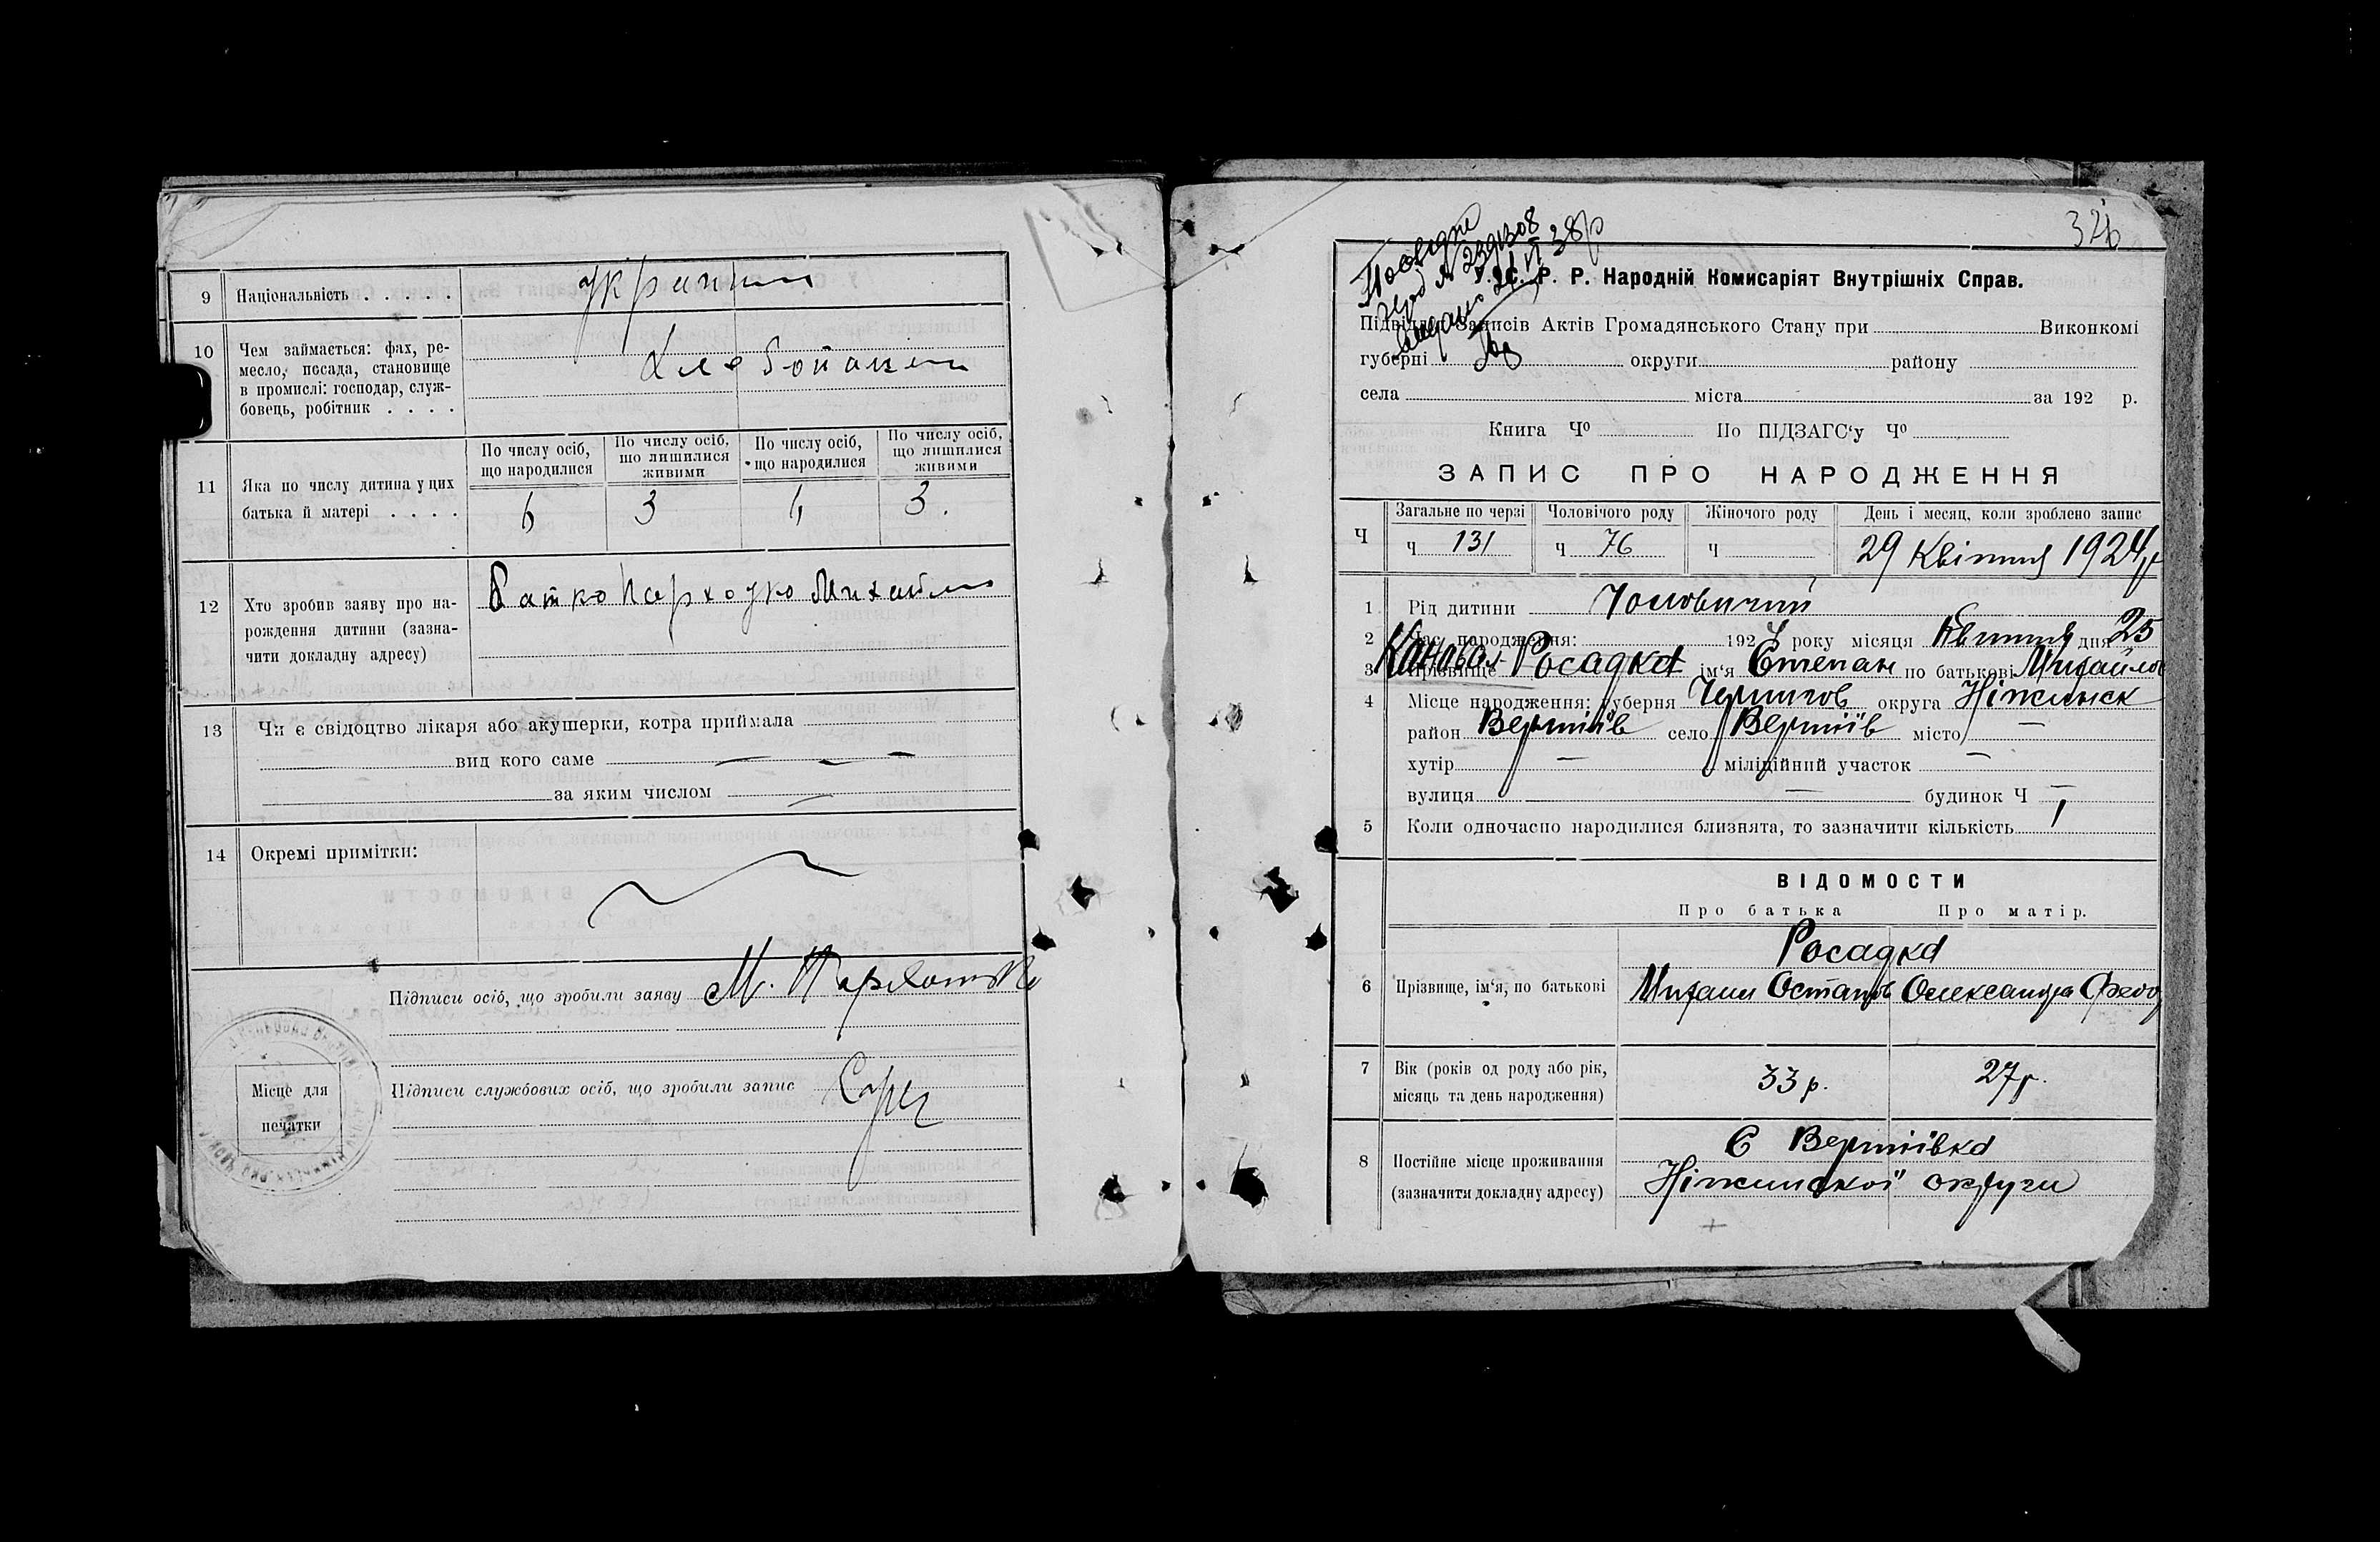 9 Національність . . . . .
українці
10 Чем займається: фах, ре-
месло, посада, становище
в промислі: господар, служ-
бовець, робітник . . . .
11 Яка по числу дитина у цих
батька й матері . . . .
По числу осіб, що народилися
По числу осіб, що лишилися живими
По числу осіб, що народилися
По числу осіб, що лишилися живими
6 3 6 3.
12 Хто зробив заяву про на-
рождення дитини (зазна-
чити докладну адресу)
Батко Пархомко Михайло
13 Чи є свідоцтво лікаря або акушерки, котра приймала
вид кого саме — — —
за яким числом —
14 Окремі примітки:
Підписи осіб, що зробили заяву М.
Підписи службових осіб, що зробили запис
Місце для
печатки
326
38р
У. С. Р. Р. Народній Комисаріят Внутрішніх Справ.
Підвідділ Записів Актів Громадянського Стану при Виконкомі
губерні округи району
села міста за 192 р.
Книга Чо По ПІДЗАГС‘у Чо
ЗАПИС ПРО НАРОДЖЕННЯ
Ч
Загальне по черзі Чоловічого роду Жіночого роду День і месяц, коли зроблено запис
Ч 131 Ч 76 Ч 29 Квітня 1924р
1 Рід дитини Чоловичий
2 Час народження: 1924 року місяця Квітня дня 25
3 Прізвище Коновал Росадка ім‘я Степан по батькові Михайлов
4 Місце народження: губерня Чернигов округа Ніжинск
район Вертіїв село Вертіїв місто —
хутір — міліційний участок —
вулиця — будинок Ч —
5 Коли одночасно народилися близнята, то зазначити кількість 1
ВІДОМОСТИ
Про батька Про матір.
Росадка
6 Прізвище, ім‘я, по батькові Михаил Остапов Олександра Феод
7 Вік (років од роду або рік,
місяць та день народження)
33 р. 27 р.
8 Постійне місце проживання
(зазначити докладну адресу)
С Вертіївка
Ніжинскої округи